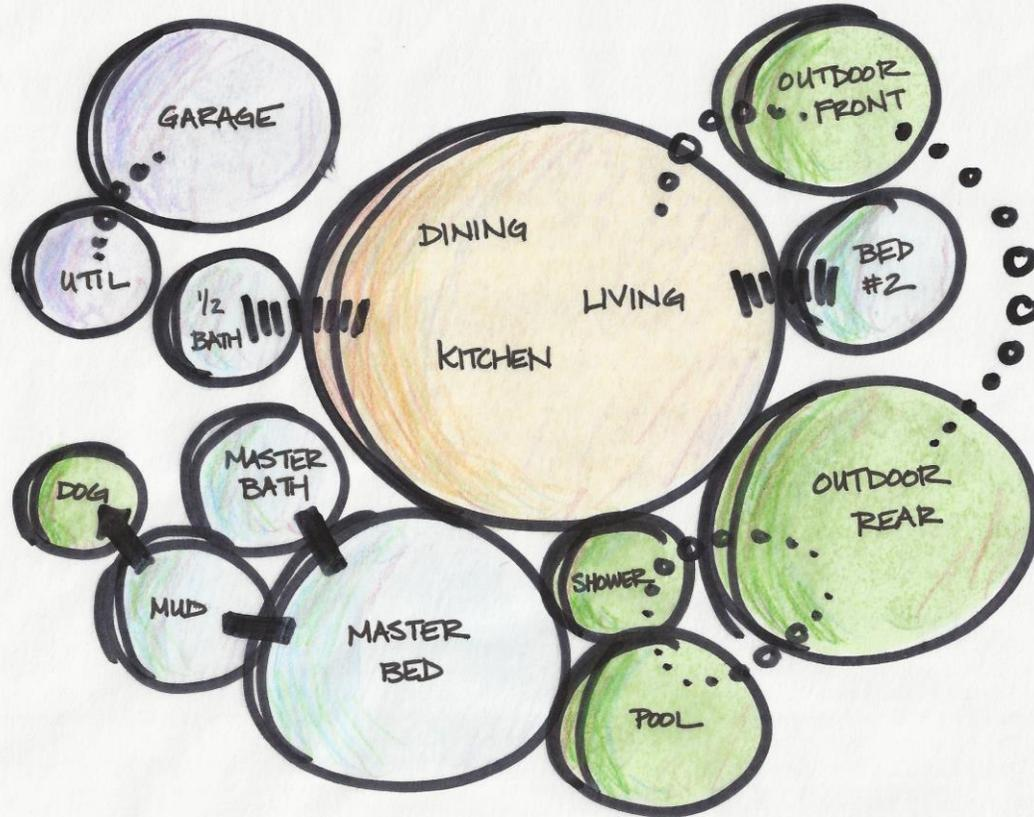 GARAGE
OUTDOOR
FRONT
UTIL
1/2
BATH
DINING
LIVING
KITCHEN
BED
#2
DOG
MASTER
BATH
OUTDOOR
REAR
MUD
MASTER
BED
SHOWER
POOL